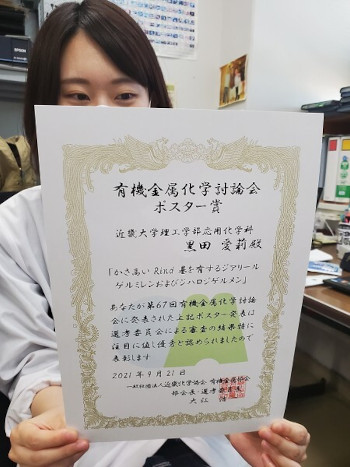 有機金属化学討論会
ポスター賞
近畿大学理工学部応用化学科
黒田 愛莉殿
「かさ高い Rind 基を有するジアリール
ゲルミレンおよびジハロゲルメン」
あなたが第67回有機金属化学討論
会に発表された上記ポスター発表は
選考委員会による審査の結果特に
注目に値し優秀と認められましたので
表彰します
2021年9月21日
一般社団法人近畿化学協会 有機金属部会
部会長・選考委員長
大江 浩一
EPSON